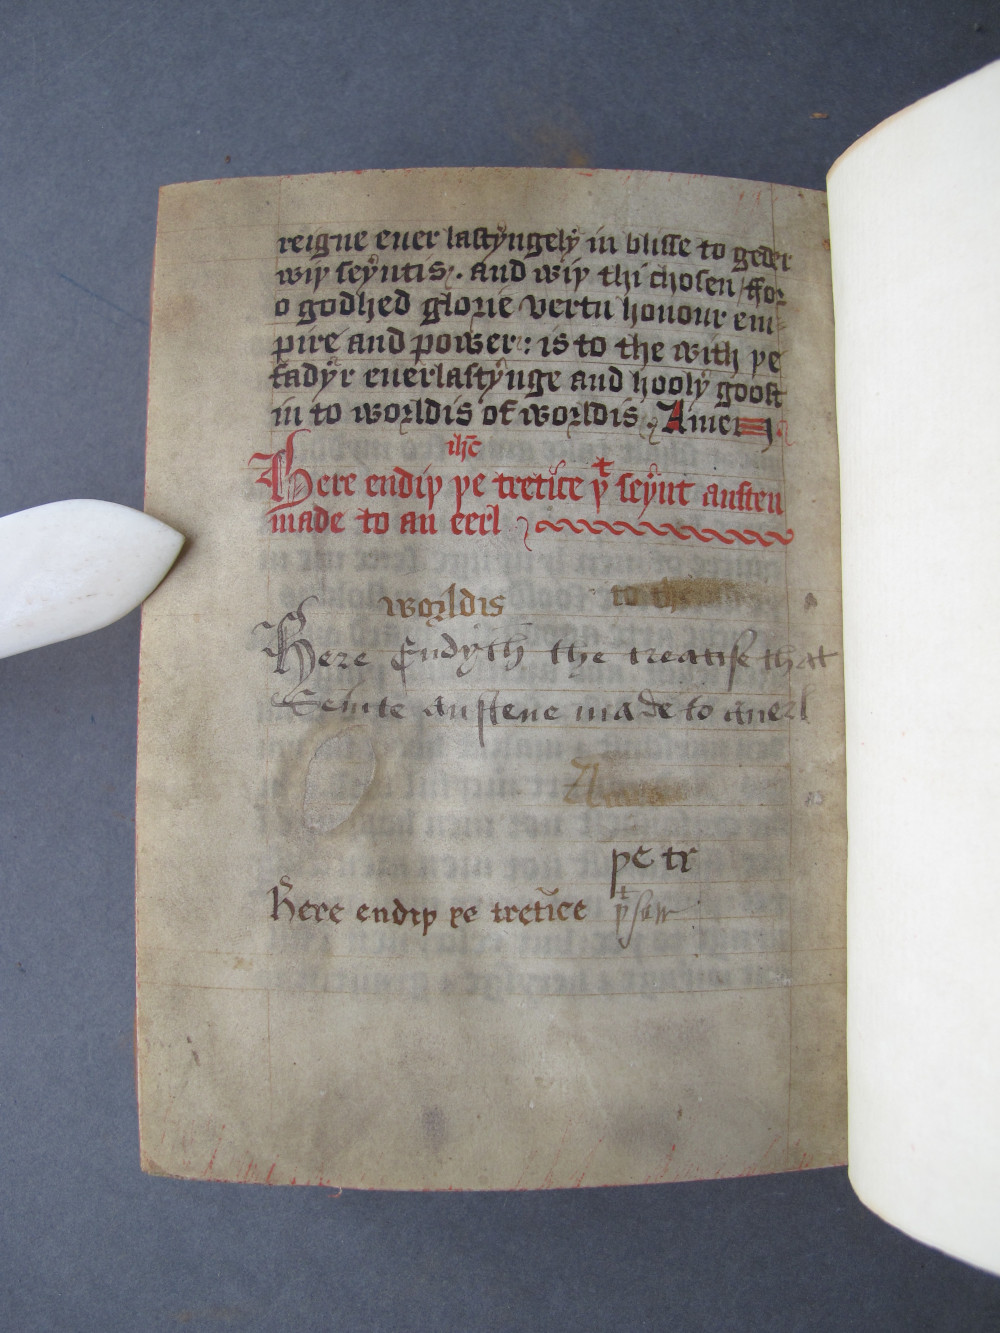 reigne euer lastyngely in blisse to geder
wiþ seyntis . and wiþ thi chosen / ffor
o godhed glorie vertu honour em-
pire and power : is to the with þe
fadyr euerlastynge and hooly goost
in to worldis of worldis . Amen .
ihc̄
Here endiþ þe tretice þͭ seynt austen
made to an eerl
worldis to the
Here Endyth the treatise that
Seinte austene made to anerl
Amen
pe tr
Here endiþ þe tretice þͭ sey